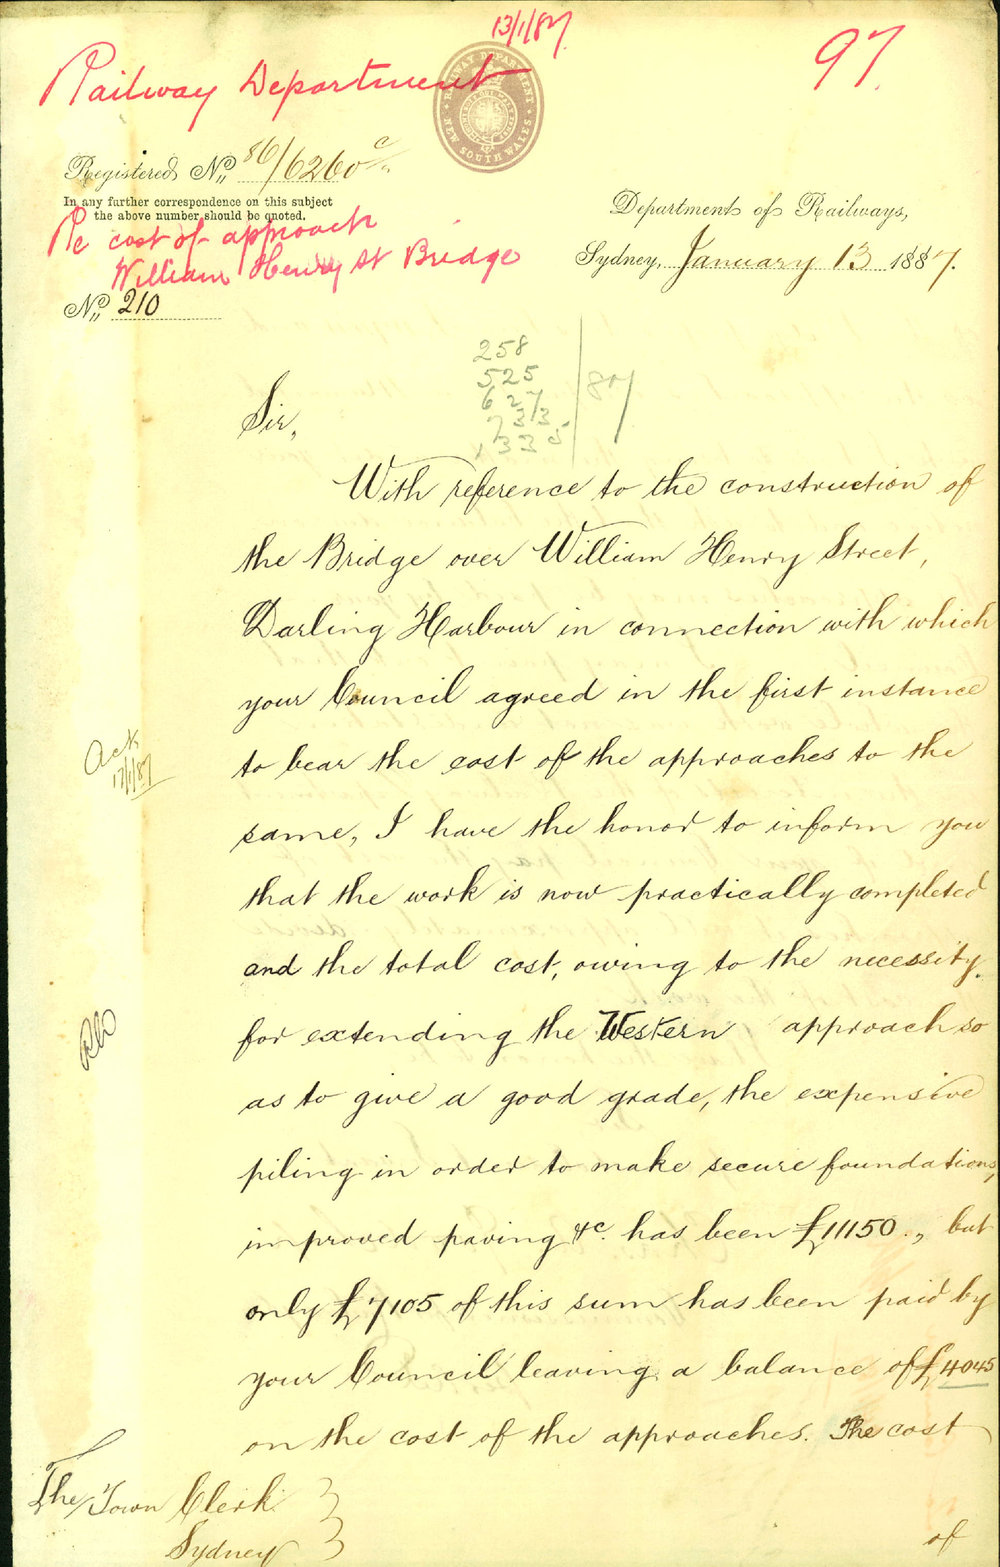 13/1/87.
97.
Railway Department
RAILWAY DEPARTMENT
NEW SOUTH WALES
Registered No. 86/6260 c
In any further correspondence on this subject
the above number should be quoted.
Re cost of approach
William Henry St Bridge
No. 210
Department of Railways,
Sydney, January 13 1887.
258
525
627
733
1335
87
Sir,
With reference to the construction of
the Bridge over William Henry Street,
Darling Harbour in connection with which
your Council agreed in the first instance
to bear the cost of the approaches to the
same, I have the honor to inform you
that the work is now practically completed
and the total cost, owing to the necessity
for extending the Western approach so
as to give a good grade, the expensive
piling in order to make secure foundations,
improved paving &c. has been £11150., but
only £7105 of this sum has been paid by
your Council leaving a balance of £4045
on the cost of the approaches. The cost
Ack
17/1/87
The Town Clerk
Sydney
of